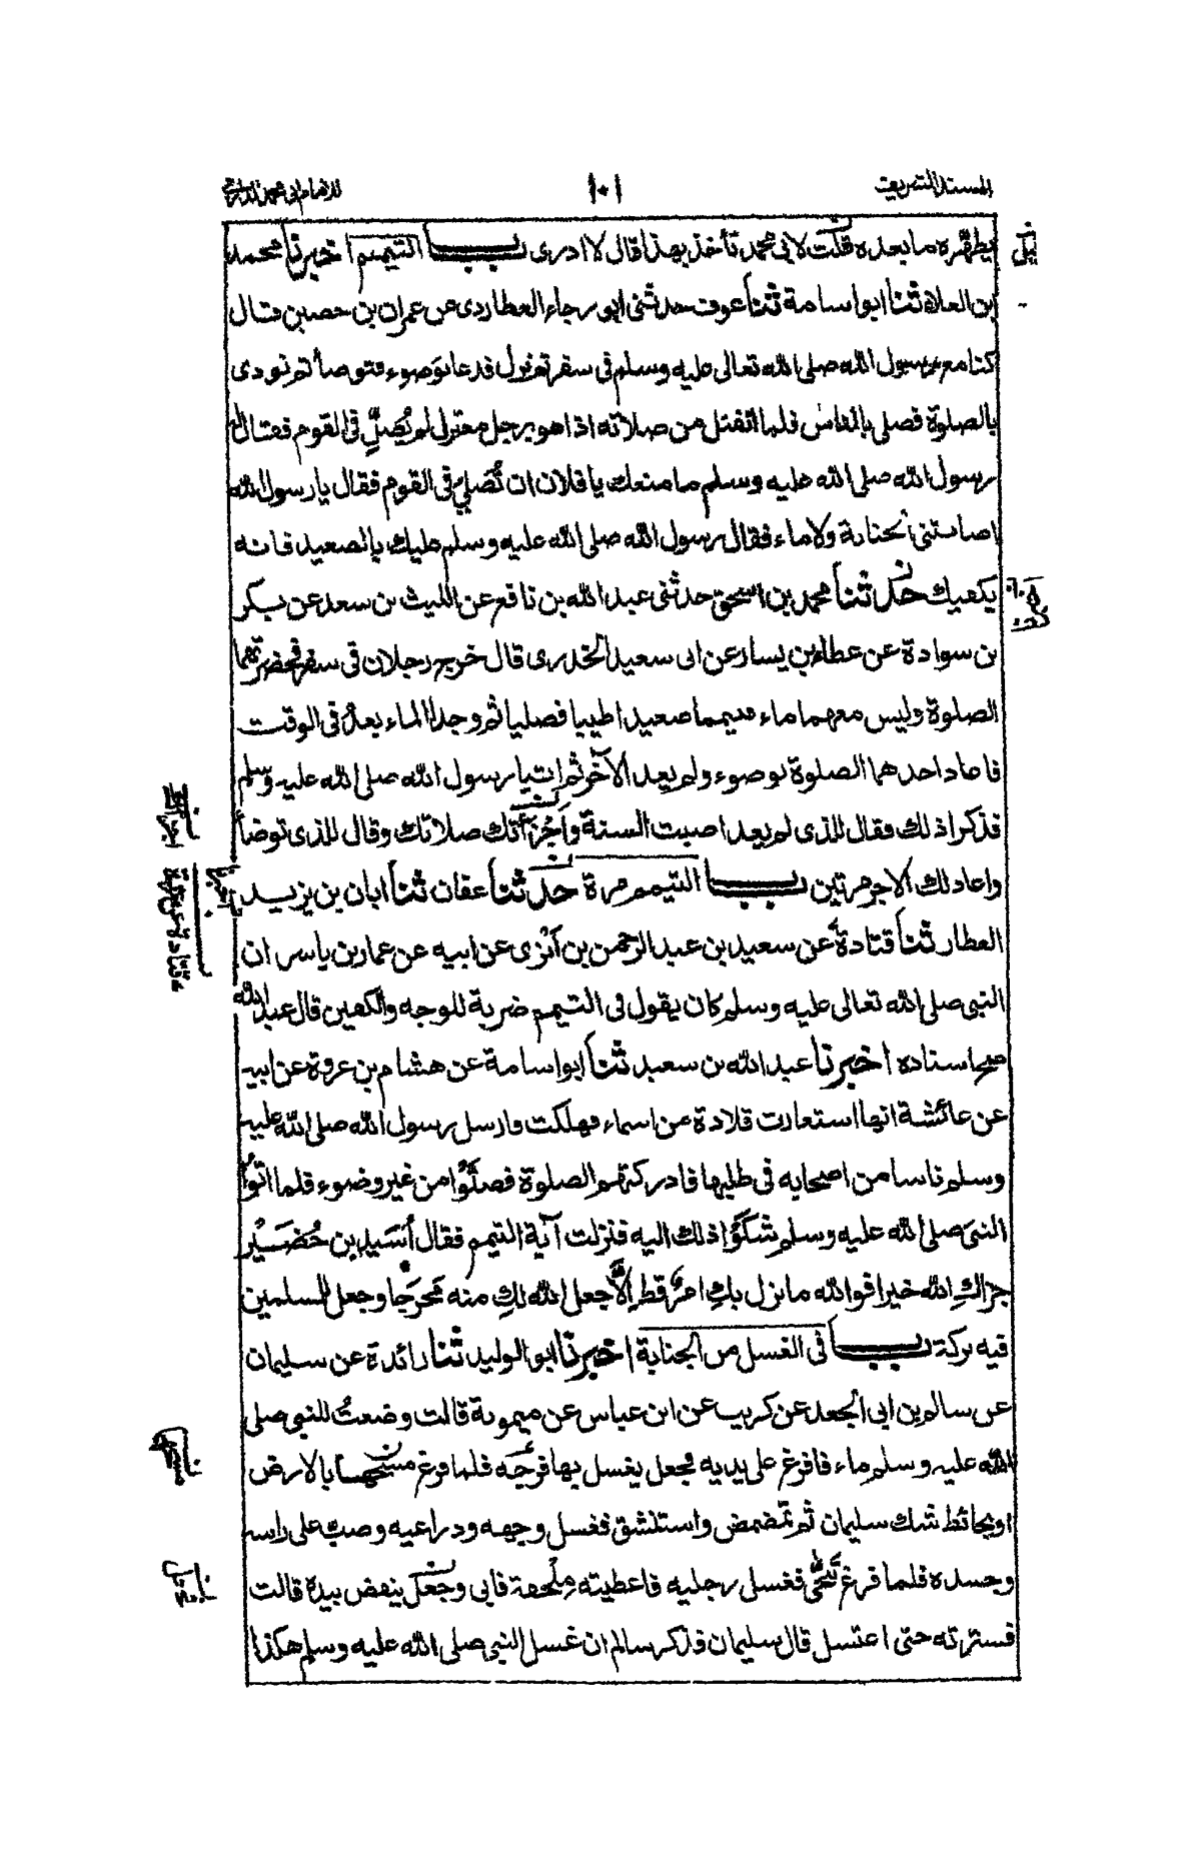 المسند الشريف
١٠١
للامام ابى محمد الدارمى
يطهره ما بعده قلت لابى محمد تأخذ بهذا قال لا ادرى باب التيمم اخبرنا محمد
ابن العلاء ثنا ابو اسامة ثنا عوف حدثنى ابو رجاء العطاردى عن عمران بن حصين قال
كنا مع رسول الله صلى الله تعالى عليه وسلم فى سفر ثم نزل فدعا بوضوء فتوضأ ثم نودى
بالصلوة فصلى بالناس فلما انفتل من صلاته اذا هو برجل معتزل لم يُصَلِّ فى القوم فقال له
رسول الله صلى الله عليه وسلم ما منعك يا فلان ان تُصَلِّىَ فى القوم فقال يا رسول الله
اصابتنى جنابة ولا ماء فقال رسول الله صلى الله عليه وسلم عليك بالصعيد فانه
يكفيك حدثنا محمد بن اسحق حدثنى عبد الله بن نافع عن الليث بن سعد عن بكر
بن سوادة عن عطاء بن يسار عن ابى سعيد الخدرى قال خرج رجلان فى سفر فحضرتهما
الصلوة وليس معهما ماء فتيمما صعيدا طيبا فصليا ثم وجدا الماء بعدُ فى الوقت
فاعاد احدهما الصلوة بوضوء ولم يعد الآخر ثم اتيا رسول الله صلى الله عليه وسلم
فذكرا ذلك فقال للذى لم يعد اصبت السنة وأجْزَأَتك صلاتك وقال للذى توضأ
واعاد لك الاجر مرتين باب التيمم مرة حدثنا عفان ثنا ابان بن يزيد
العطار ثنا قتادة عن سعيد بن عبد الرحمن بن أَبْزى عن ابيه عن عمار بن ياسر ان
النبى صلى الله تعالى عليه وسلم كان يقول فى التيمم ضربة للوجه والكفين قال عبد الله
صح اسناده اخبرنا عبد الله بن سعيد ثنا ابو اسامة عن هشام بن عروة عن ابيه
عن عائشة انها استعارت قلادة من اسماء فهلكت فارسل رسول الله صلى الله عليه
وسلم ناسا من اصحابه فى طلبها فادركتهم الصلوة فصلَّوْا من غير وضوء فلما اتَوُا
النبى صلى الله عليه وسلم شَكَوْا ذلك اليه فنزلت آية التيمم فقال أُسَيد بن حُضَيْر
جزاكِ الله خيرا فوالله ما نزل بكِ امرٌ قط إلّا جعل الله لكِ منه مخرجًا وجعل للمسلمين
فيه بركة باب فى الغسل من الجنابة اخبرنا ابو الوليد ثنا زائدة عن سليمان
عن سالم بن ابى الجعد عن كريب عن ابن عباس عن ميمونة قالت وضعتُ للنبى صلى
الله عليه وسلم ماء فافرغ على يديه فجعل يغسل بها فرجَه فلما فرغ مسحها بالارض
او بحائط شك سليمان ثم تمضمض واستنشق فغسل وجهه وذراعيه وصبّ على راسه
وجسده فلما فرغ تَنَحّى فغسل رجليه فاعطيته مِلْحفة فابى وجعل ينفض بيده قالت
فسترته حتى اغتسل قال سليمان فذكر سالم ان غسل النبى صلى الله عليه وسلم هكذا